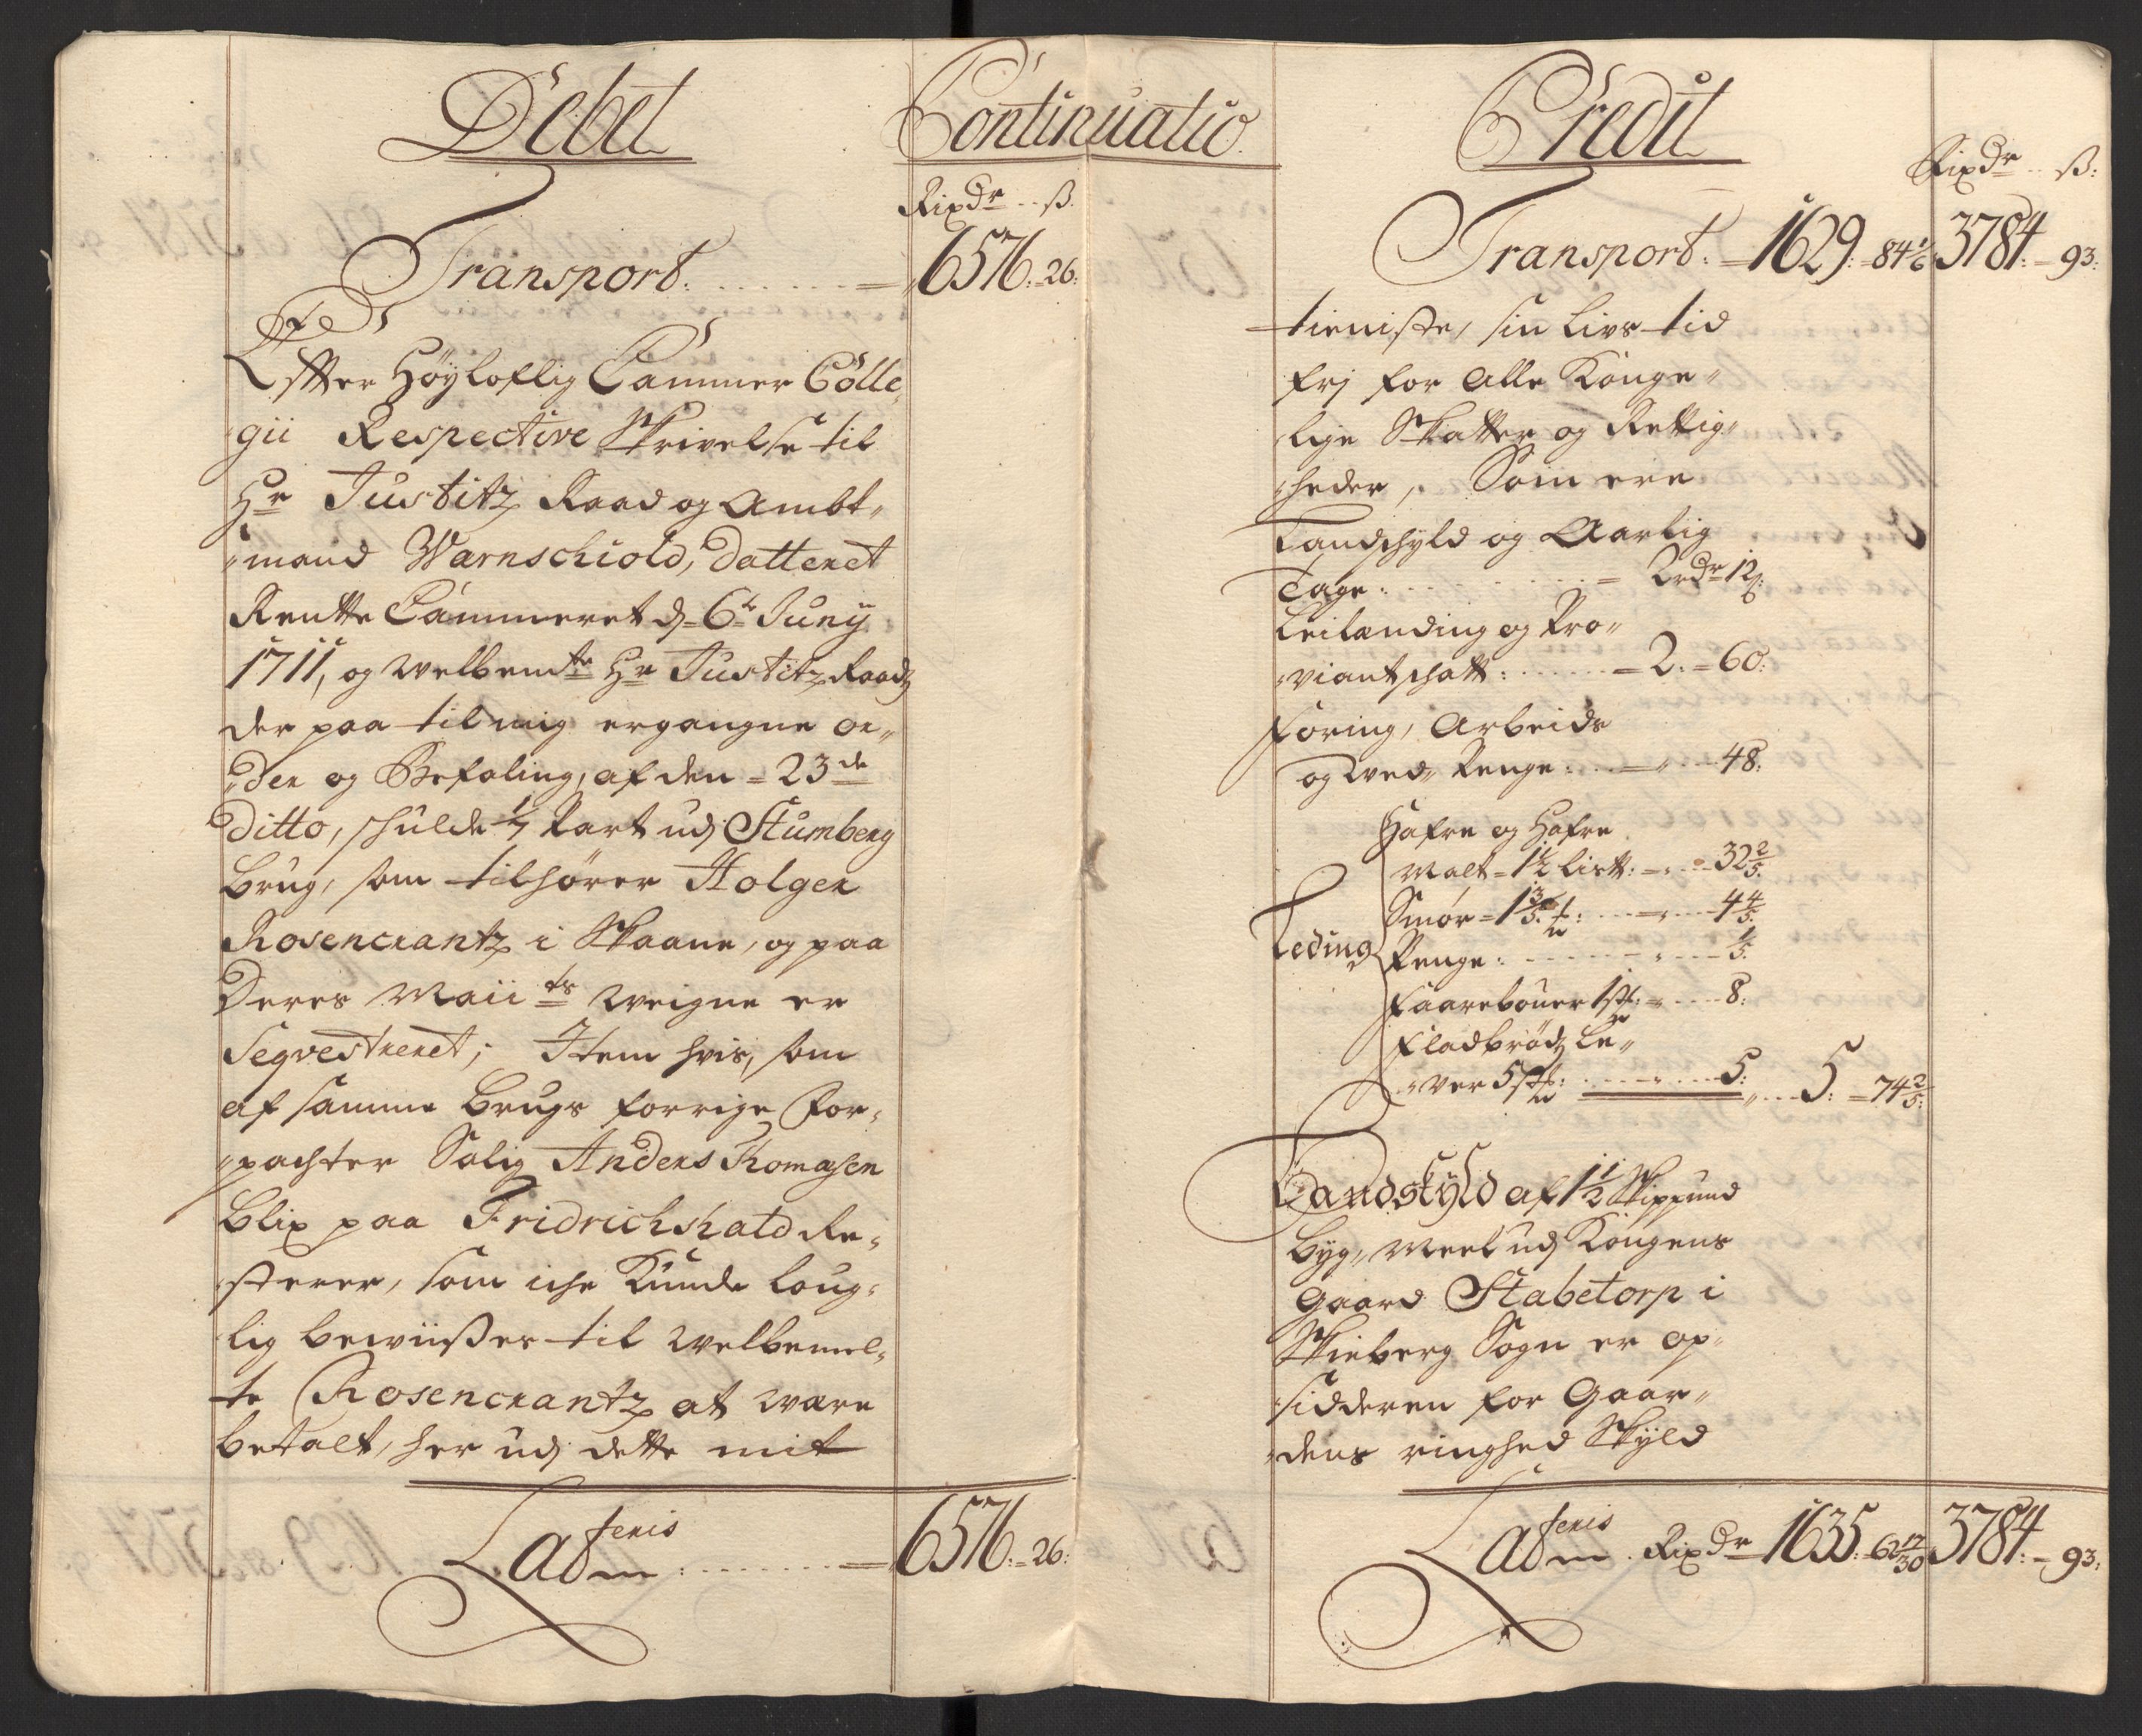 Debet
Continuatio
Rixdr ß.
Transport. 6576.-26:
Effter Höyloflig Cammer Colle,
gii Respective Skrivelse til
Hr Justitz Raad og Ambt"
"mand Warnschiold, datteret
Rentte Cammeret d. 6te Juny
1711, og welbemte Hr Justitz Raadz
der paa til mig ergangne or"
"der og Befaling, af den 23de
Ditto, schulde 1/7 Part udj Stumberg
Brug, som tilhører Holger
Rosencrantz i Skaane, og paa
Deres Maiits weigne er
Seqvestreret; Item hvis, som
af samme Brugs forrige For,
"pachter Salig Anders Thomasen
Blix paa Fridrichshald Re,
sterer, som iche Kunde loug,
lig bewiißes til welbemel,
te Rosencrantz at ware
betalt, her udj dette mit
Lateris 6576.-26:
Credit
Rixdr ß:
Transport. 1629:-84 1/6 3784:-93:
tieniste, sin Livs tid
frj for alle Konge"
lige Skatter og Rettig"
heder, Som ere
Landschyld og Aarlig
Tage: Rdr 1 12:
Leilænding og Pro"
viantschatt: 2.-60:
Foring, Arbeids
og wed" Penge: 48:
Leding
Hafre og Hafre
Malt 1 1/2 List: 32 2/5.
Smør 1 3/5. 4 4/5.
Penge: 1/5.
Faarebouer 1 st: 8:
Fladbrødz Le"
"ver 5 st: 5: 5:-74 2/5:
Landskyld af 1 1/2 Skippund
Byg, Meel udj Kongens
Gaard Stabetorp i
Skieberg Sogn er op,
sidderen for Gaar"
dens ringhed Skyld
Lateris Rixdr 1635:-62 17/30 3784:-93: